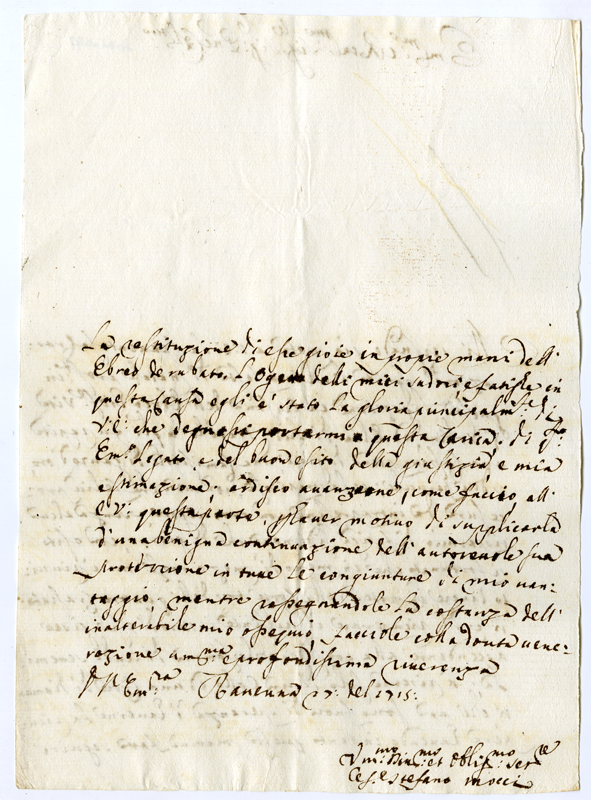 La restituzione di esse gioie in proprie mani dell'
Ebreo derubato. L'Opera delli miei sudori e fatighe in
questa causa egli è stato. La gloria principalm.te di
V: E: che degnossi portarmi a questa Carica, di
Em.o Legato, e del buon esito della giustizia, e mia
estimazione. ardisco avanzarne, come faccio all'
E V: questa parte, p hauer motivo di supplicarla
d'una benigna continuazione dell'autoreuole sua
Protezzione in tutte le congiunture di mio uan:
taggio; mentre rassegnandole La costanza dell'
inalterabile mio ossequio, facciole colla douta uene:
razione um.ma e profondissima riuerenza
Rauenna 27: del 1715:
V.mo Diu.mo et Oblig.mo ser.re
Ces.e Stefano mocci